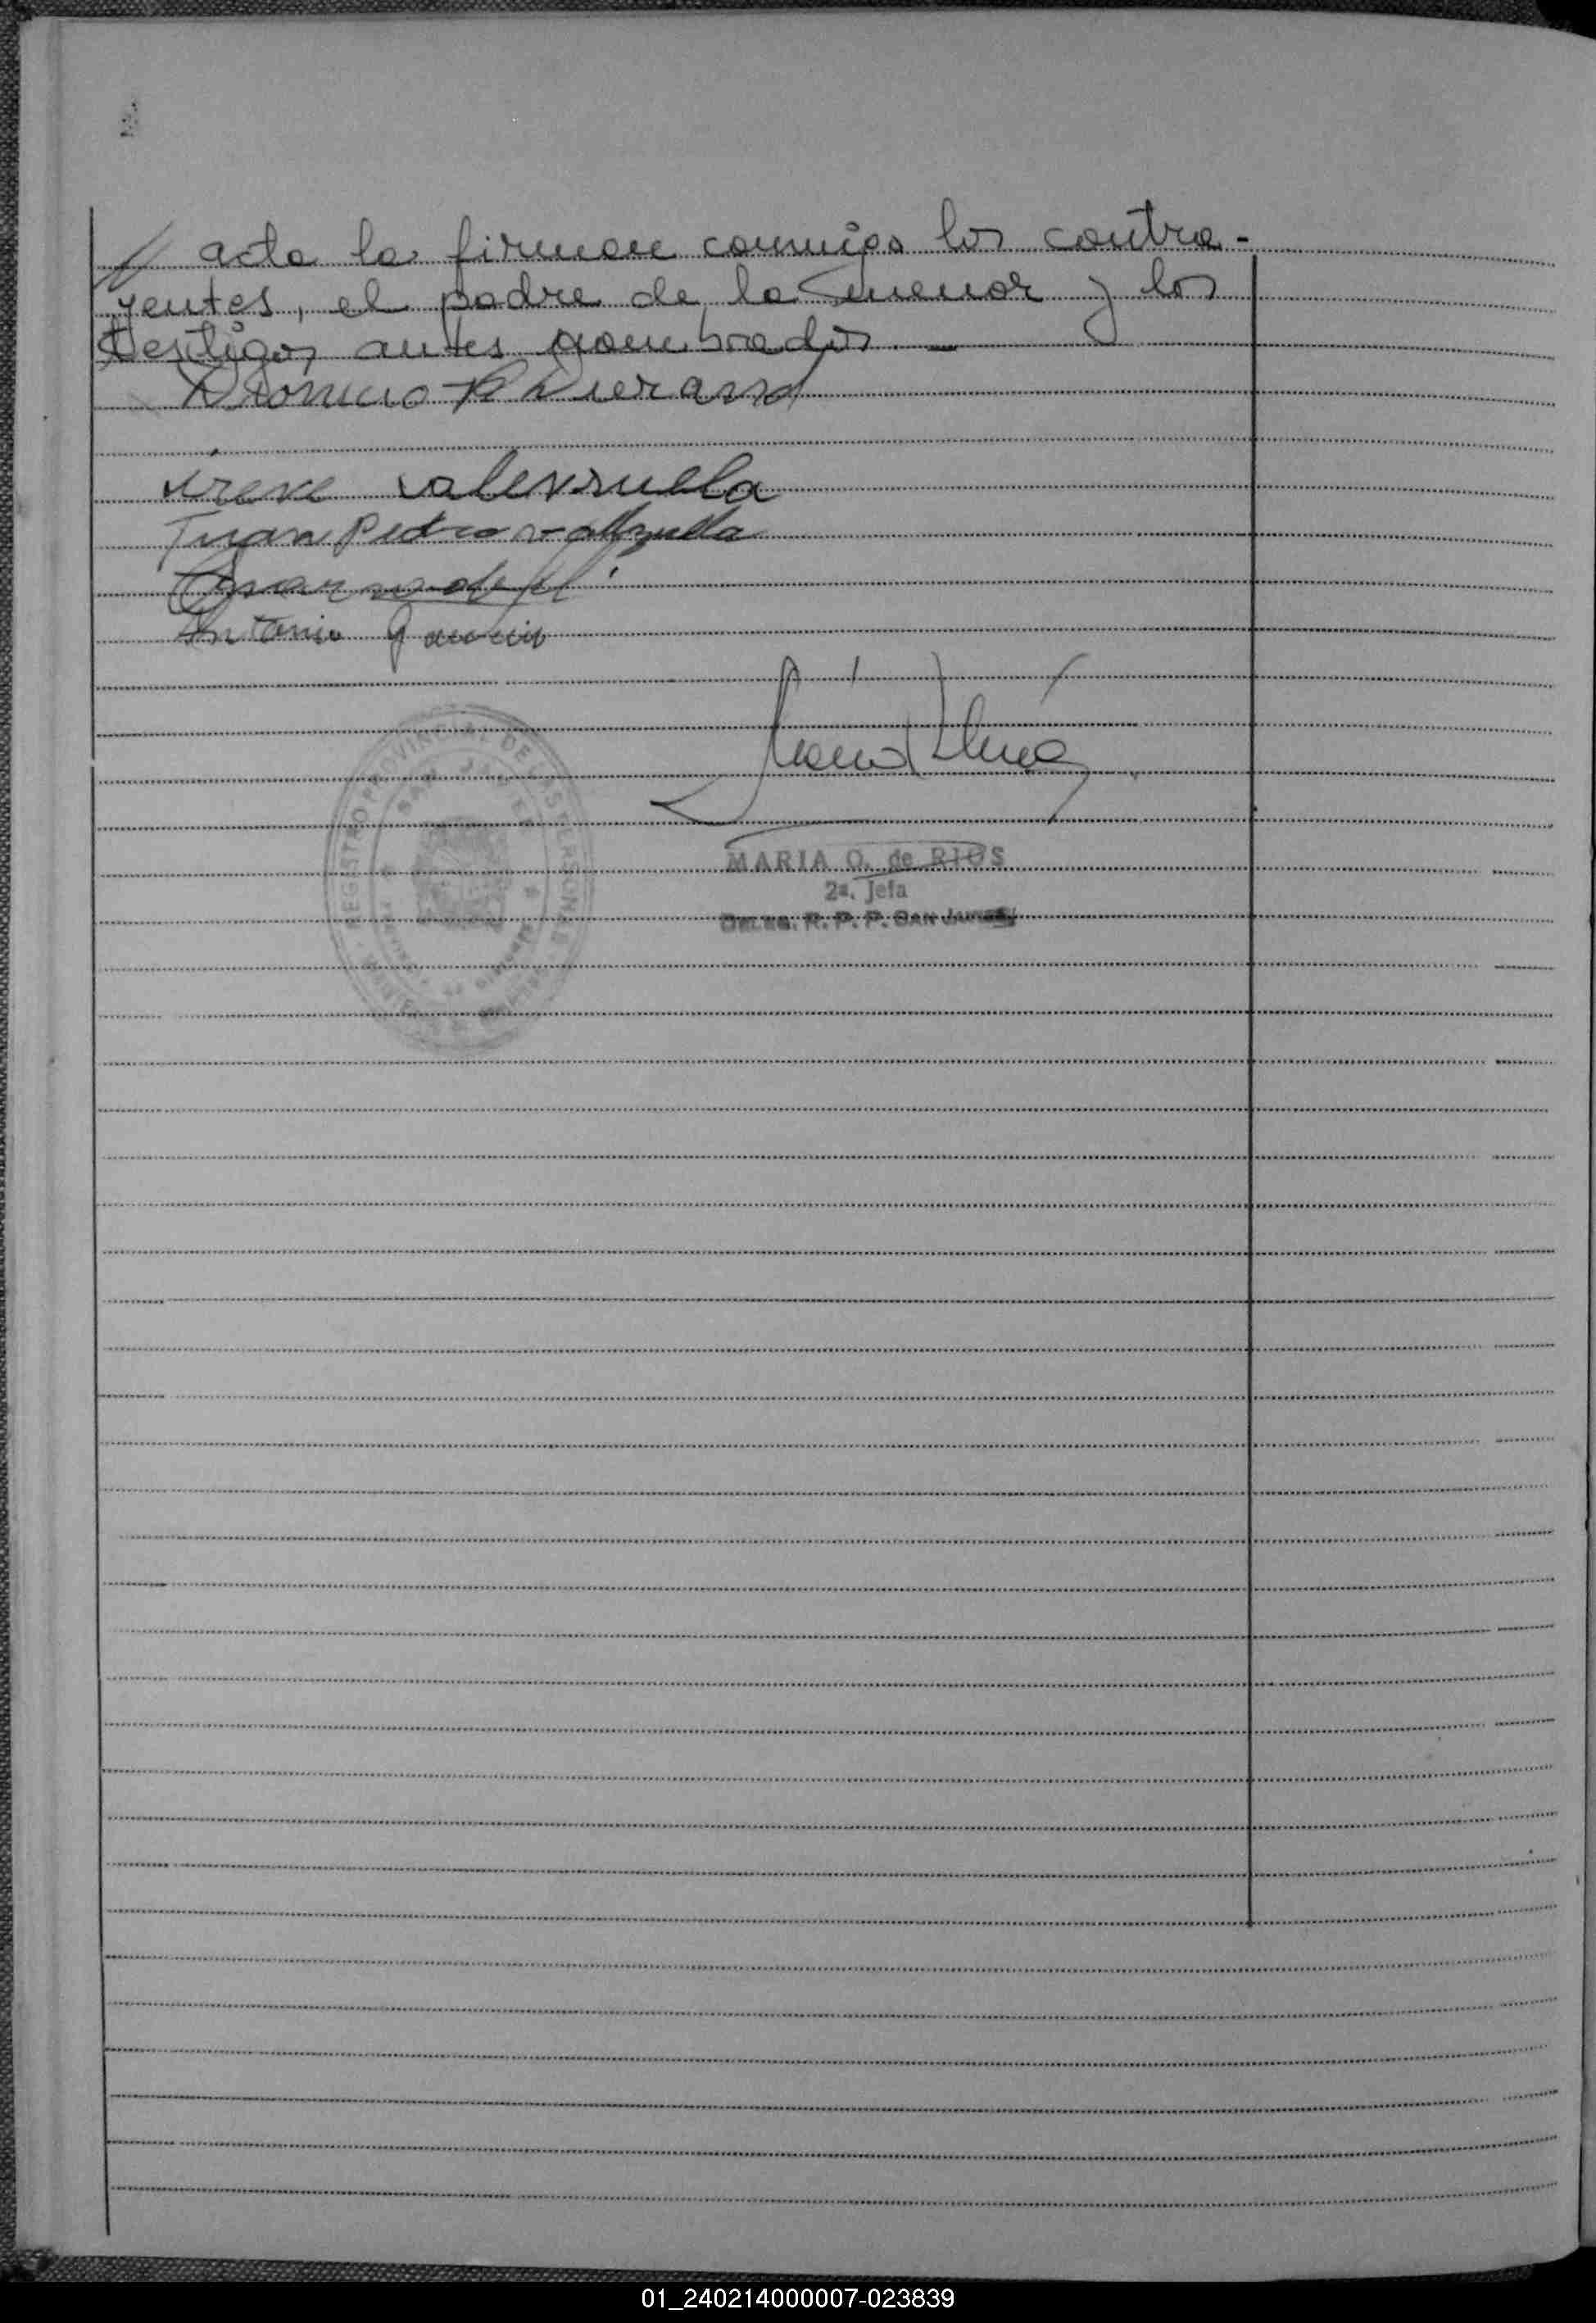 // acta la firman conmigo los contra-
yentes, el padre de la menor y los
testigos antes nombrados. —
Dionicio
irene valenzuela
Juan Pedro valenzuela
Antonio
REGISTRO PROVINCIAL DE LAS PERSONAS
MARIA O. de RIOS
2ª. Jefa
DELEG. R. P. P. SAN JAIME
01_240214000007-023839